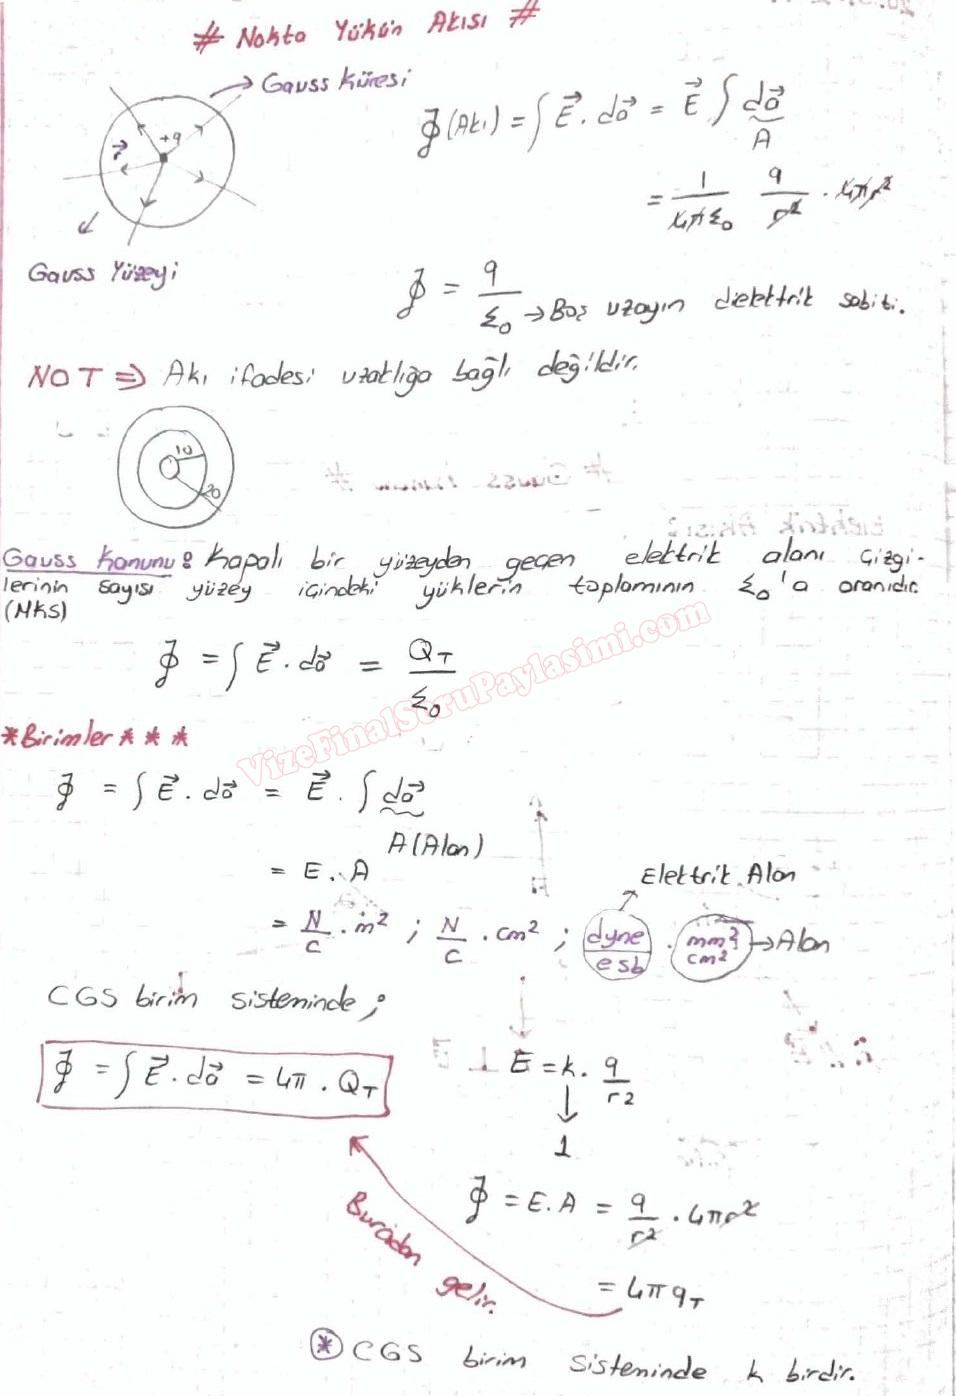 # Nokta Yükün Akısı #
→ Gauss Küresi
+q
r⃗
Gauss Yüzeyi
Φ (Akı) = ∫ E⃗ . do⃗ = E⃗ ∫ do⃗
A
= 1/4πε₀ q/r² . 4πr²
Φ = q/ε₀ → Boş uzayın dielektrik sabiti.
NOT ⇒ Akı ifadesi uzaklığa bağlı değildir.
10
20
Gauss Kanunu: Kapalı bir yüzeyden geçen elektrik alanı çizgi-
lerinin sayısı yüzey içindeki yüklerin toplamının ε₀'a oranıdır.
(MKS)
Φ = ∫ E⃗ . do⃗ = Q_T/ε₀
VizeFinalSoruPaylasimi.com
*Birimler * * *
Φ = ∫ E⃗ . do⃗ = E⃗ . ∫ do⃗
A (Alan)
= E . A
Elektrik Alan
= N/C . m² ; N/C . cm² ; dyne/esb . mm²/cm² → Alan
CGS birim sisteminde ;
Φ = ∫ E⃗ . do⃗ = 4π . Q_T
E = k . q/r²
↓
1
Φ = E . A = q/r² . 4πr²
= 4πq_T
Buradan gelir.
* CGS birim sisteminde k birdir.